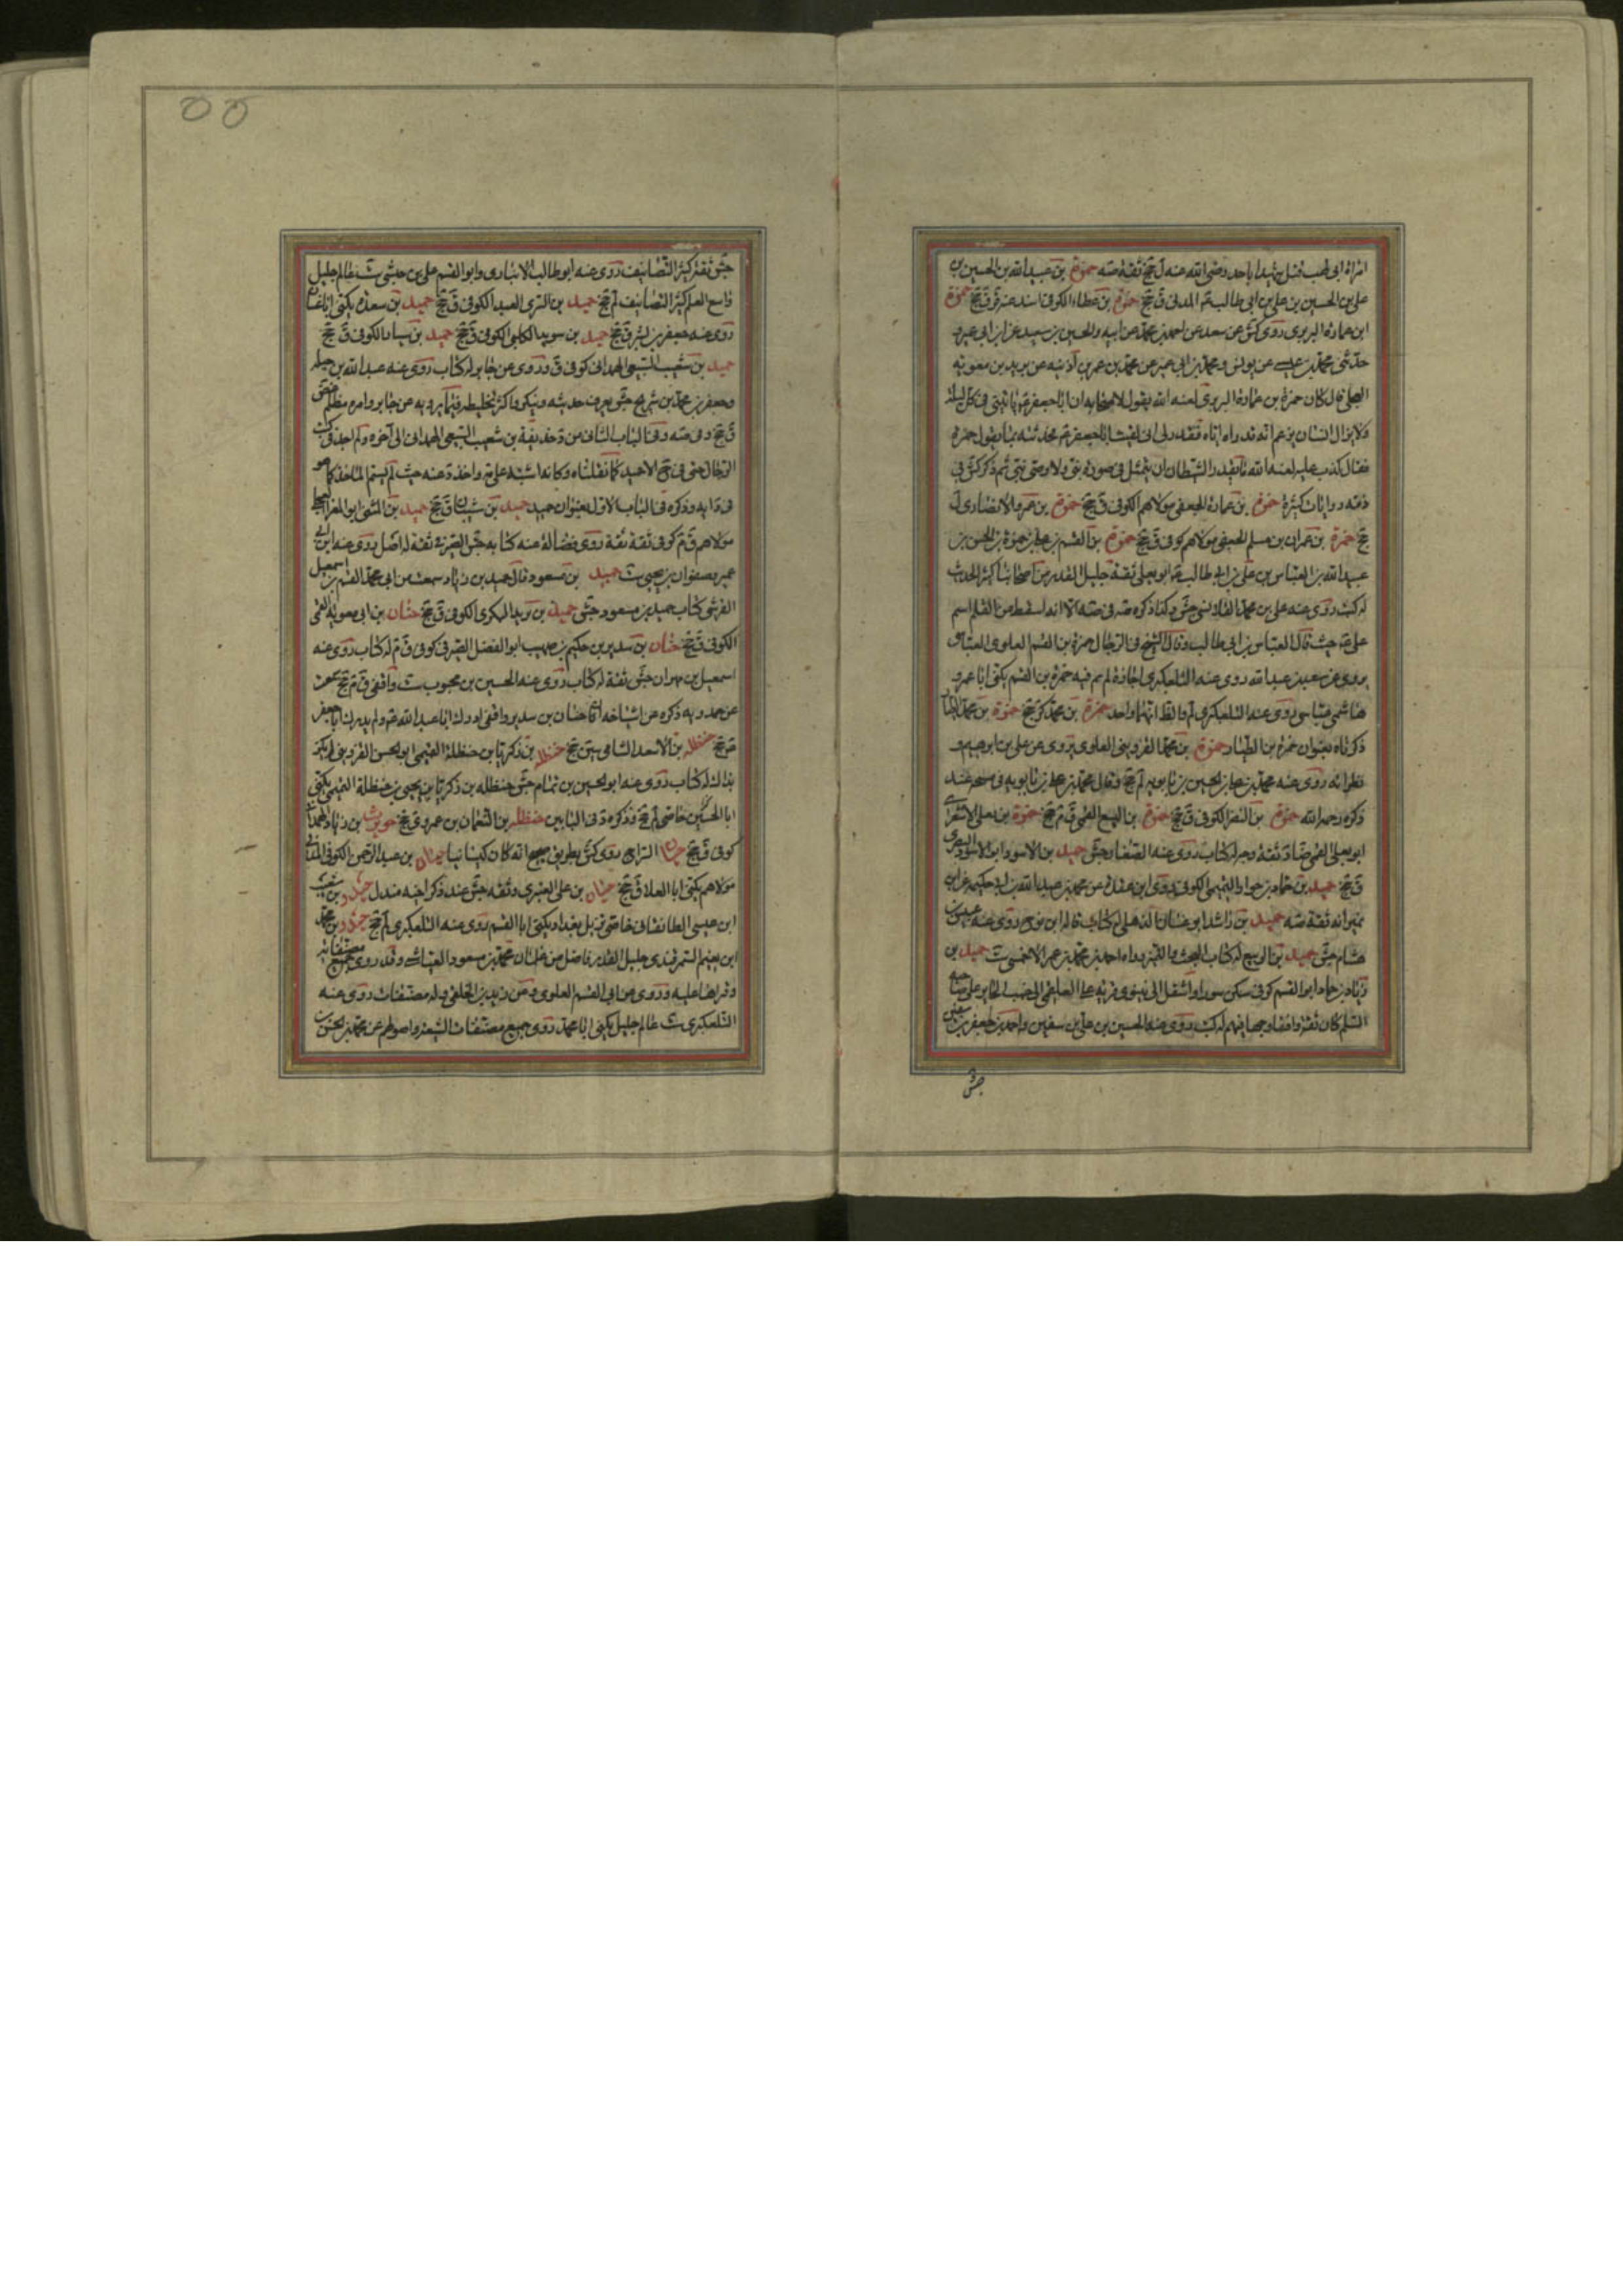 امرأة ابى لهب قتل شهيدا باحد رضى الله عنه ل جخ ثقة صه حمزة بن عبيد الله بن الحسين بن
على بن الحسين بن على بن ابى طالب المدنى ق جخ حمزة بن عطاء الكوفى اسند عنه ق جخ حمزة
ابن عمارة البربرى روى كش عن سعد عن احمد بن محمد عن ابيه والحسين بن سعيد عن ابن ابى عمير و
حدثنى محمد بن عيسى عن يونس ومحمد بن ابى عمير عن محمد بن عمر بن اذينه عن بريد بن معوية
العجلى قال كان حمزة بن عمارة البربرى لعنه الله يقول لاصحابه ان ابا جعفر ع ياتينى فى كل ليلة
ولا يزال انسان يزعم انه قد راه اياه فقدر لى انى لقيت ابا جعفر ع فحدثته بما يقول حمزة
فقال كذب عليه لعنة الله ما يقدر الشيطان ان يتمثل فى صورة نبى ولا وصى نبى ثم ذكر كش فى
ذمه روايات كثيرة حمزة بن عمارة الجعفى مولاهم الكوفى ق جخ حمزة بن عمرو الانصارى ل
جخ حمزة بن عمران بن مسلم الجعفى مولاهم كوفى ق جخ حمزة بن القسم بن على بن حمزة بن الحسن بن
عبيد الله بن العباس بن على بن ابى طالب ع ابو يعلى ثقة جليل القدر من اصحابنا كثير الحديث
له كتب روى عنه على بن محمد القلانسى جش وكذا ذكره صه فى صه الا انه اسقط من القلم اسم
على ع حيث قال العباس بن ابى طالب وقال الشيخ فى الرجال حمزة بن القسم العلوى العباسى
يروى عن سعد بن عبد الله روى عنه التلعكبرى اجازة لم وفيه حمزة بن القسم يكنى ابا عمرو
هاشمى عباسى روى عنه التلعكبرى لم والظ انهما واحد حمزة بن محمد كر جخ حمزة بن محمد الطيار
ذكرناه بعنوان حمزة بن الطيار حمزة بن محمد القزوينى العلوى يروى عن على بن ابرهيم و
نظرائه روى عنه محمد بن على بن الحسين بن بابويه لم جخ
ذكره رحمه الله حمزة بن النصر الكوفى ق جخ حمزة بن اليسع القمى ق م جخ حمزة بن يعلى الاشعرى
ابو يعلى القمى ضا د ثقة وجه له كتاب روى عنه الصفار جش حميد بن الاسود ابو الاسود البصرى
ق جخ حميد بن حماد بن حوار التميمى الكوفى روى ابن عقدة عن محمد بن عبد الله بن ابى حكيمه عن ابن
نمير انه ثقة صه حميد بن راشد ابو غسان الذهلى له كتاب قاله ابن نوح روى عنه عبيس بن
هشام جش حميد بن الربيع له كتاب البحث والتميز رواه احمد بن محمد بن عمر الاحمسى ست حميد بن
زياد بن حماد ابو القسم كوفى سكن سورا وانتقل الى نينوى قرية على العلقمى الى جنب الحاير على صاحبه
السلم كان ثقة واقفا وجها فيهم له كتب روى عنه الحسين بن على بن سفين واحمد بن جعفر بن سفين
جش
جش ثقة كثير التصانيف روى عنه ابو طالب الانبارى وابو القسم على بن حبشى ست عالم جليل
واسع العلم كثير التصانيف لم جخ حميد بن السرى العبدى الكوفى ق جخ حميد بن سعدة يكنى ابا غسان
روى عنه جعفر بن بشير ق جخ حميد بن سويد الكلبى الكوفى ق جخ حميد بن سيار الكوفى ق جخ
حميد بن شعيب السبيعى الهمدانى كوفى ق وروى عن جابر له كتاب روى عنه عبد الله بن جبلة
وجعفر بن محمد بن شريح جش يعرف حديثه وينكر واكثر تخليطه فيما يرويه عن جابر وامره مظلم غض
ق جخ وفى صه وفى الباب الثانى من د حذيفة بن شعيب السبيعى الهمدانى الى آخره ولم اجد فى كتب
الرجال حتى فى جخ الا حميد كما نقلناه وكانه اشتبه على مة واخذ د عنه حيث لم يسم الماخذ كما هو
فى دابه وذكره فى الباب الاول بعنوان حميد حميد بن شيبان ق جخ حميد بن المثنى ابو المغرا العجلى
مولاهم ق م كوفى ثقة ثقة روى فضالة عنه كتابه جش الصيرفى ثقة له اصل روى عنه ابن ابى
عمير وصفوان بن يحيى ست حميد بن مسعود قال حميد بن زياد سمعت من ابى محمد القسم بن اسمعيل
القرشى كتاب حميد بن مسعود جش حميد بن يزيد البكرى الكوفى ق جخ حنان بن ابى معوية القمى
الكوفى ق جخ حنان بن سدير بن حكيم بن صهيب ابو الفضل الصيرفى كوفى ق م له كتاب روى عنه
اسمعيل بن مهران جش ثقة له كتاب روى عنه الحسين بن محبوب ست واقفى ق م جخ سمعت
عن حمدويه ذكره عن اشياخه ان حنان بن سدير واقفى ادرك ابا عبد الله ع ولم يدرك ابا جعفر
ع جخ حنظلة بن الاسعد الشامى سين جخ حنظلة بن زكريا بن حنظلة التميمى ابو الحسن القزوينى لم يكن
بذاك له كتاب روى عنه ابو الحسين بن تمام جش حنظله بن زكريا بن يحيى بن حنظلة التميمى يكنى
ابا الحسين خاصى لم جخ وذكره د فى البابين حنظلة بن النعمان بن عمرو ى جخ حويرث بن زياد الهمدانى
كوفى ق جخ حيان السراج روى كش بطريق صحيح انه كان كيسانيا حيان بن عبد الرحمن الكوفى المدنى
مولاهم يكنى ابا العلا ق جخ حيان بن على العنزى وثقه جش عند ذكر اخيه مندل حيدر بن شعيب
ابن عيسى الطالقانى خاصى نزيل بغداد يكنى ابا القسم روى عنه التلعكبرى لم جخ حيدر بن محمد
ابن نعيم السمرقندى جليل القدر فاضل من غلمان محمد بن مسعود العياشى وقد روى جميع مصنفاته
وقراها عليه وروى عن ابى القسم العلوى وعن زيد بن الحلقى وله مصنفات روى عنه
التلعكبرى ست عالم جليل يكنى ابا محمد روى جميع مصنفات الشيعة واصولهم عن محمد بن الحسن بن